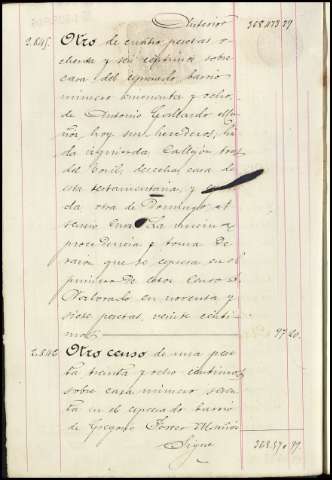 Anterior 368.473 79
2.845. Otro de cuatro pesetas o-
chenta y seis céntimos sobre
casa del espresado barrio
número cincuenta y ocho,
de Antonio Gallardo
hoy sus herederos; lin-
da izquierda Callejón
del Toril, derecha, casa de
esta testamentaria, y
da otra de Domingo
procedencia y toma de
razón que se espresa en el
primero de estos Censos
Valorado en noventa y
siete pesetas, veinte cénti-
mos 97 20.
2.846 Otro censo de una pese-
ta treinta y ocho céntimos
sobre casa número seten-
ta en el espresado barrio
de Gregorio Ferrer
Sigue 368.570 99.